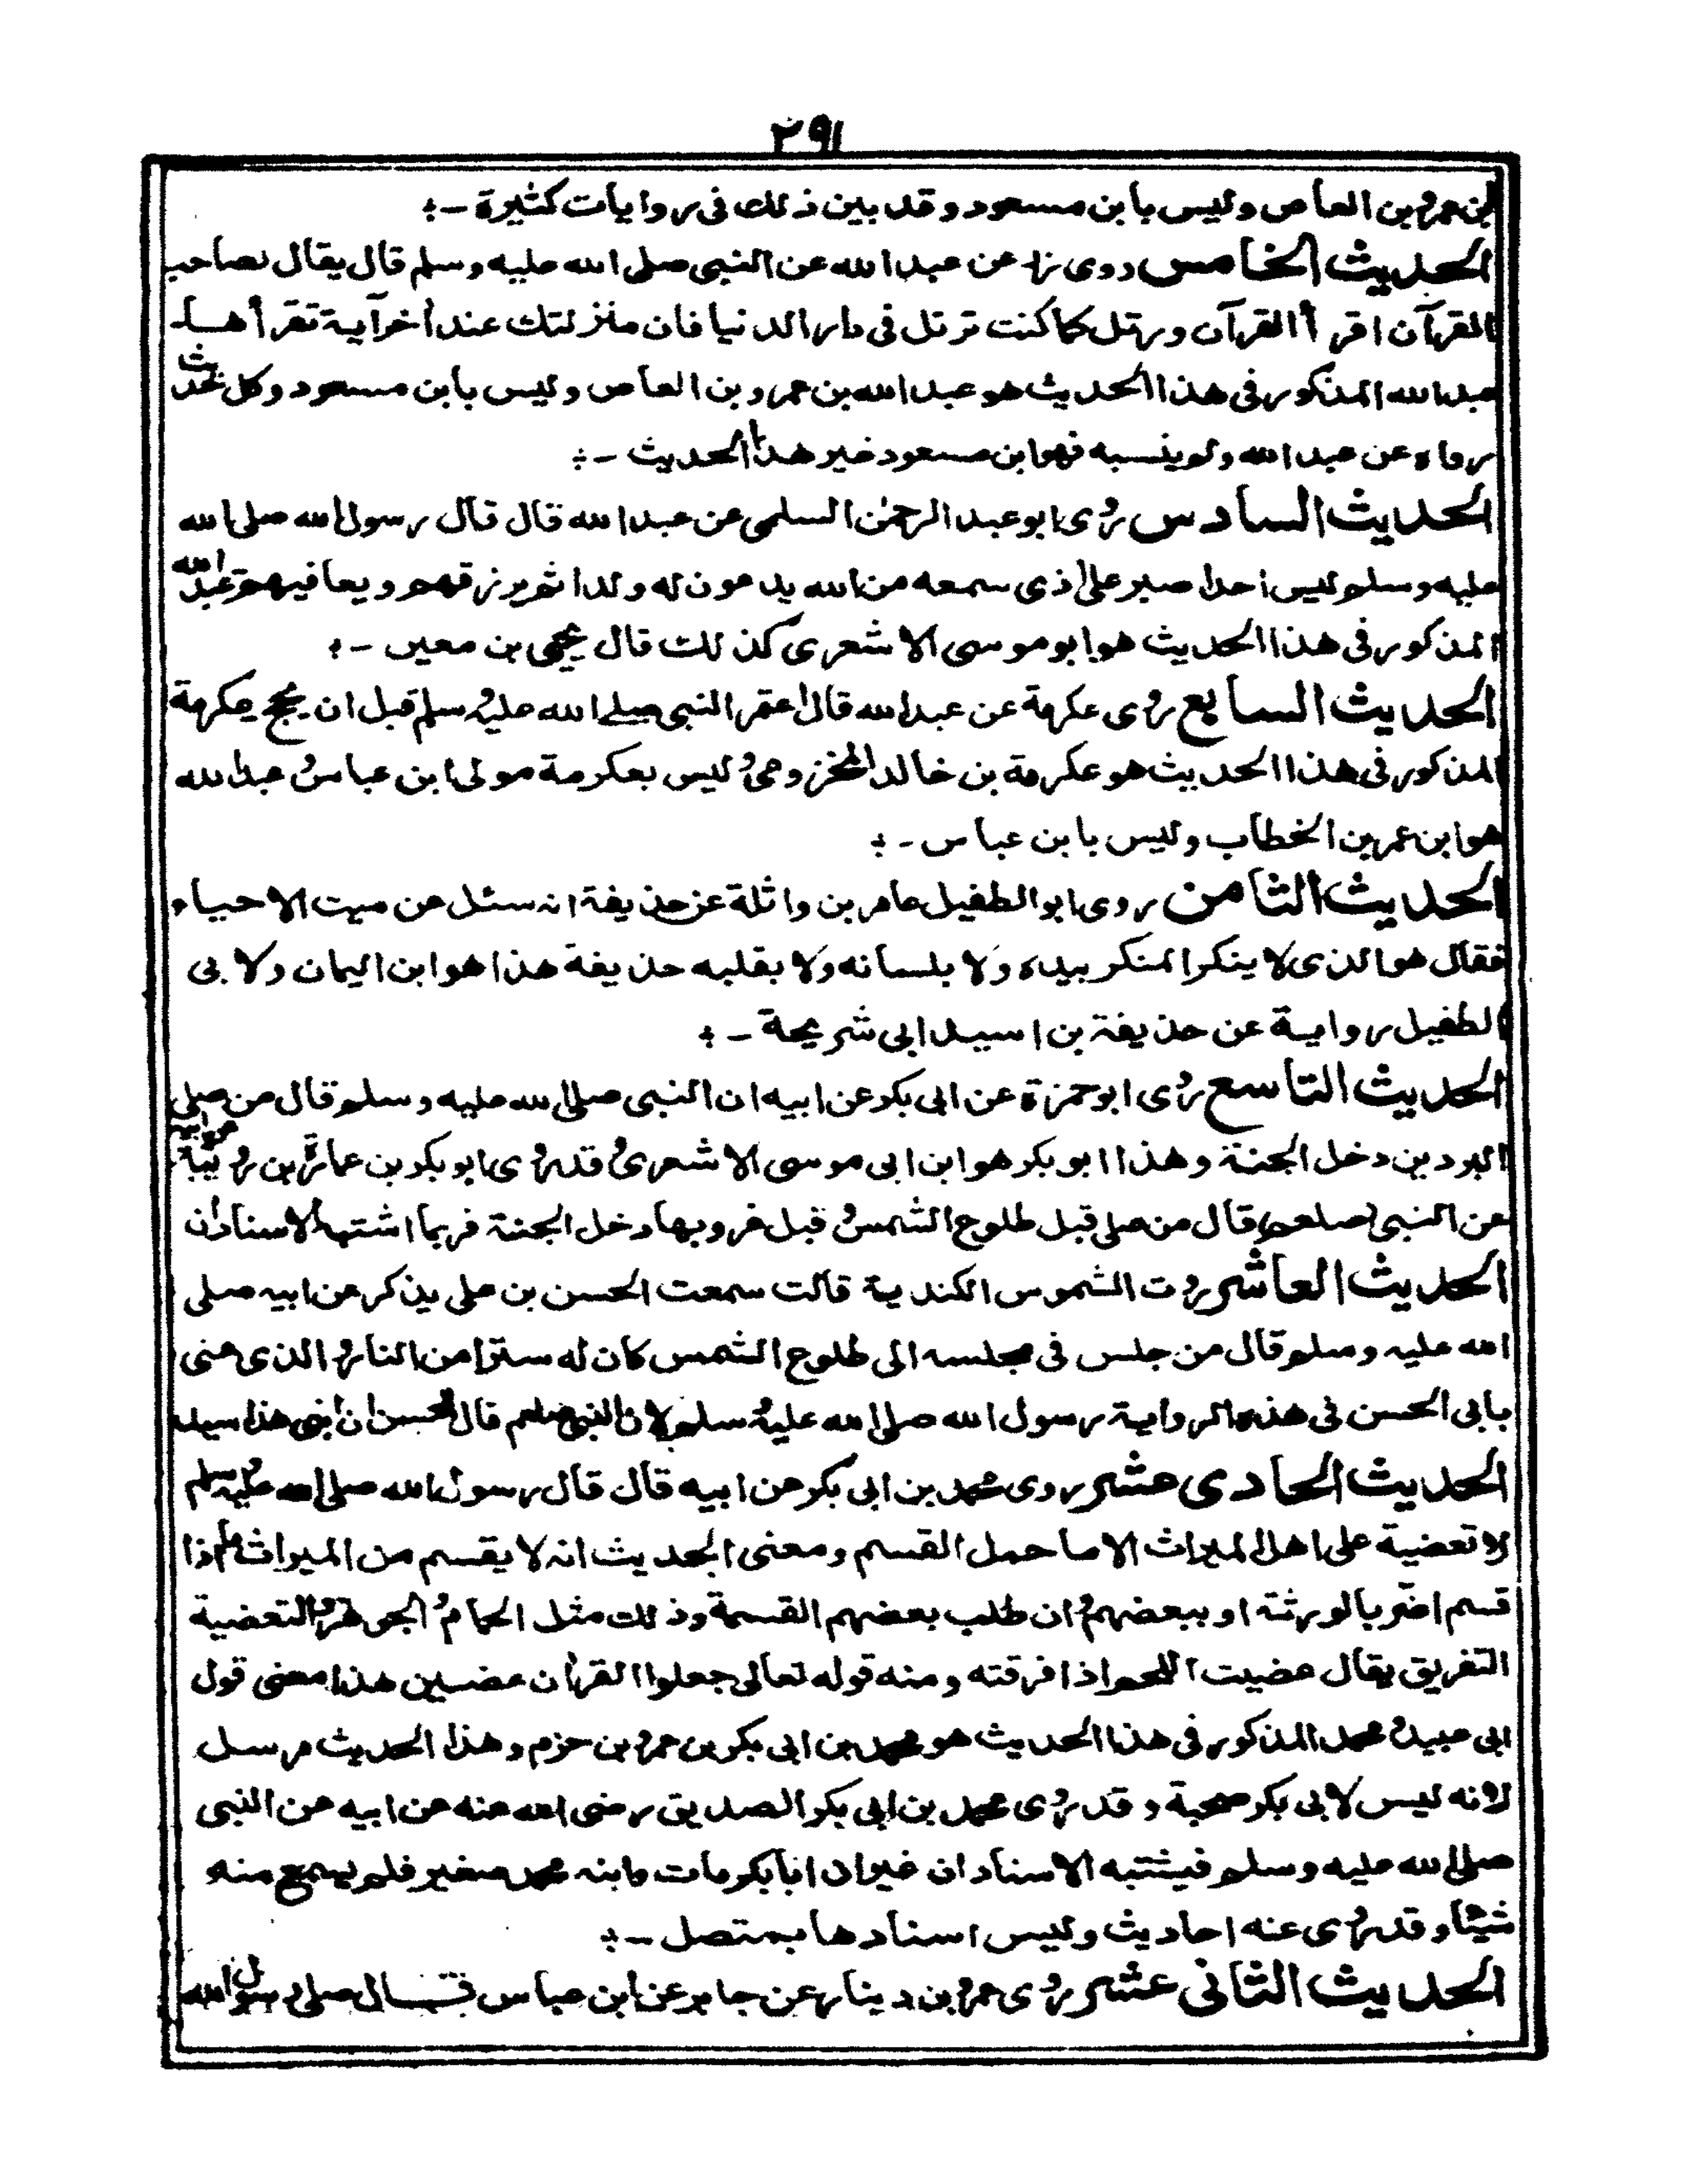 ٢٩١
ابن عمرو بن العاص وليس بابن مسعود وقد بين ذلك فى روايات كثيرة ـ:
الحديث الخامس روى زر عن عبدالله عن النبى صلى الله عليه وسلم قال يقال لصاحب
القرآن اقرأ القرآن ورتل كما كنت ترتل فى دار الدنيا فان منزلتك عند أخر آية تقرأها۔
عبدالله المذكور فى هذا الحديث هو عبدالله بن عمرو بن العاص وليس بابن مسعود وكل حديث
رواه عن عبدالله ولم ينسبه فهو ابن مسعود غير هذا الحديث ـ:
الحديث السادس روى ابو عبد الرحمن السلمى عن عبدالله قال قال رسول الله صلى الله
عليه وسلم ليس احدا صبر على اذى سمعه من الله يدعون له ولدا ثم يرزقهم ويعافيهم وعبدالله
المذكور فى هذا الحديث هو ابو موسى الاشعرى كذلك قال يحيى بن معين ـ:
الحديث السابع روى عكرمة عن عبدالله قال اعتمر النبى صلے الله عليه وسلم قبل ان يحج عكرمة
المذكور فى هذا الحديث هو عكرمة بن خالد المخزومى وليس بعكرمة مولى ابن عباس وعبدالله
هو ابن عمر بن الخطاب وليس بابن عباس ـ:
الحديث الثامن روى ابو الطفيل عامر بن واثلة عن حذيفة انه سئل عن ميت الاحياء
فقال هو الذى لا ينكر المنكر بيده ولا بلسانه ولا بقلبه حذيفة هذا هو ابن اليمان ولابى
الطفيل رواية عن حذيفة بن اسيد ابى شريحة ـ:
الحديث التاسع روى ابو حمزة عن ابى بكر عن ابيه ان النبى صلى الله عليه وسلم قال من صلى
البردين دخل الجنة وهذا ابو بكر هو ابن ابى موسى الاشعرى وقد روى ابو بكر بن عمارة بن رويبة عن ابيه
عن النبى (صلعم) قال من صلى قبل طلوع الشمس وقبل غروبها دخل الجنة فربما اشتبه الاسنادان
الحديث العاشر روت الشموس الكندية قالت سمعت الحسن بن على يذكر عن ابيه صلى
الله عليه وسلم قال من جلس فى مجلسه الى طلوع الشمس كان له سترا من النار والذى عنى
بابى الحسن فى هذه الرواية رسول الله صلى الله عليه وسلم لان النبى صلعم قال للحسن ان ابنى هذا سيد
الحديث الحادى عشر روى محمد بن ابى بكر عن ابيه قال قال رسول الله صلى الله عليه وسلم
لا تعضية على اهل الميراث الا ما حمل القسم ومعنى الحديث انه لا يقسم من الميراث ما اذا
قسم اضر بالورثة او ببعضهم وان طلب بعضهم القسمة وذلك مثل الحمام والجوهر والتعضية
التفريق يقال عضيت اللحم اذا فرقته ومنه قوله تعالى جعلوا القرأن عضين هذا معنى قول
ابى عبيد ومحمد المذكور فى هذا الحديث هو محمد بن ابى بكر بن عمرو بن حزم وهذا الحديث مرسل
لانه ليس لابى بكر صحبة وقد روى محمد بن ابى بكر الصديق رضى الله عنه عن ابيه عن النبى
صلى الله عليه وسلم فيشتبه الاسنادان غيران ابابكر مات وابنه محمد صغير فلم يسمع منه
شيئا وقد روى عنه احاديث وليس اسنادها بمتصل ـ:
الحديث الثانى عشر روى عمرو بن دينار عن جابر عن ابن عباس قــال صلى رسول الله